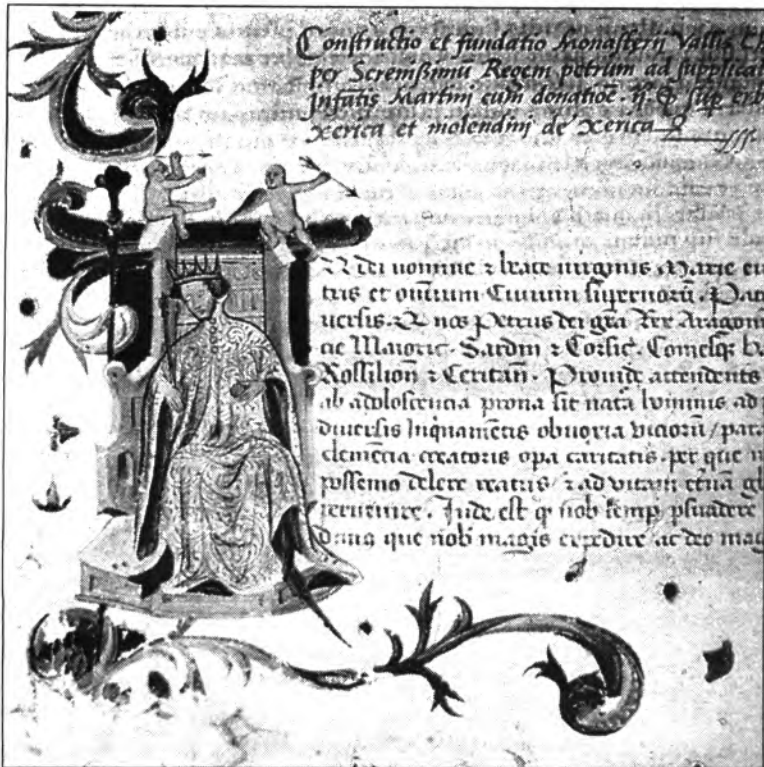 Constructio et fundatio Monasterij Vallis
per Serenißimũ Regem petrum ad supplica
Infãtis Martini cum donatiõe · ij · sup erb
xerica et molendini de xerica
Dei nomine ⁊ beate virginis Marie
tris et omnium Civium supernorũ · Pat
versis · nos Petrus dei gr̃a Rex Aragon
cie Maioric · Sardin ⁊ Corsic · Comesq̃ b
Rossilion ⁊ Ceritan · Provide attendentes
ab adoloscencia prona sit nata hominis ad
diversis Inquamẽtis obnoxia viciorũ / pat
clemencia creatoris opa caritatis · per que
possemo delere reatus / ⁊ ad vitam etnã gl
pervenire · Inde est q̃ nob semp psuadere
que nob magis expedire ac deo mag